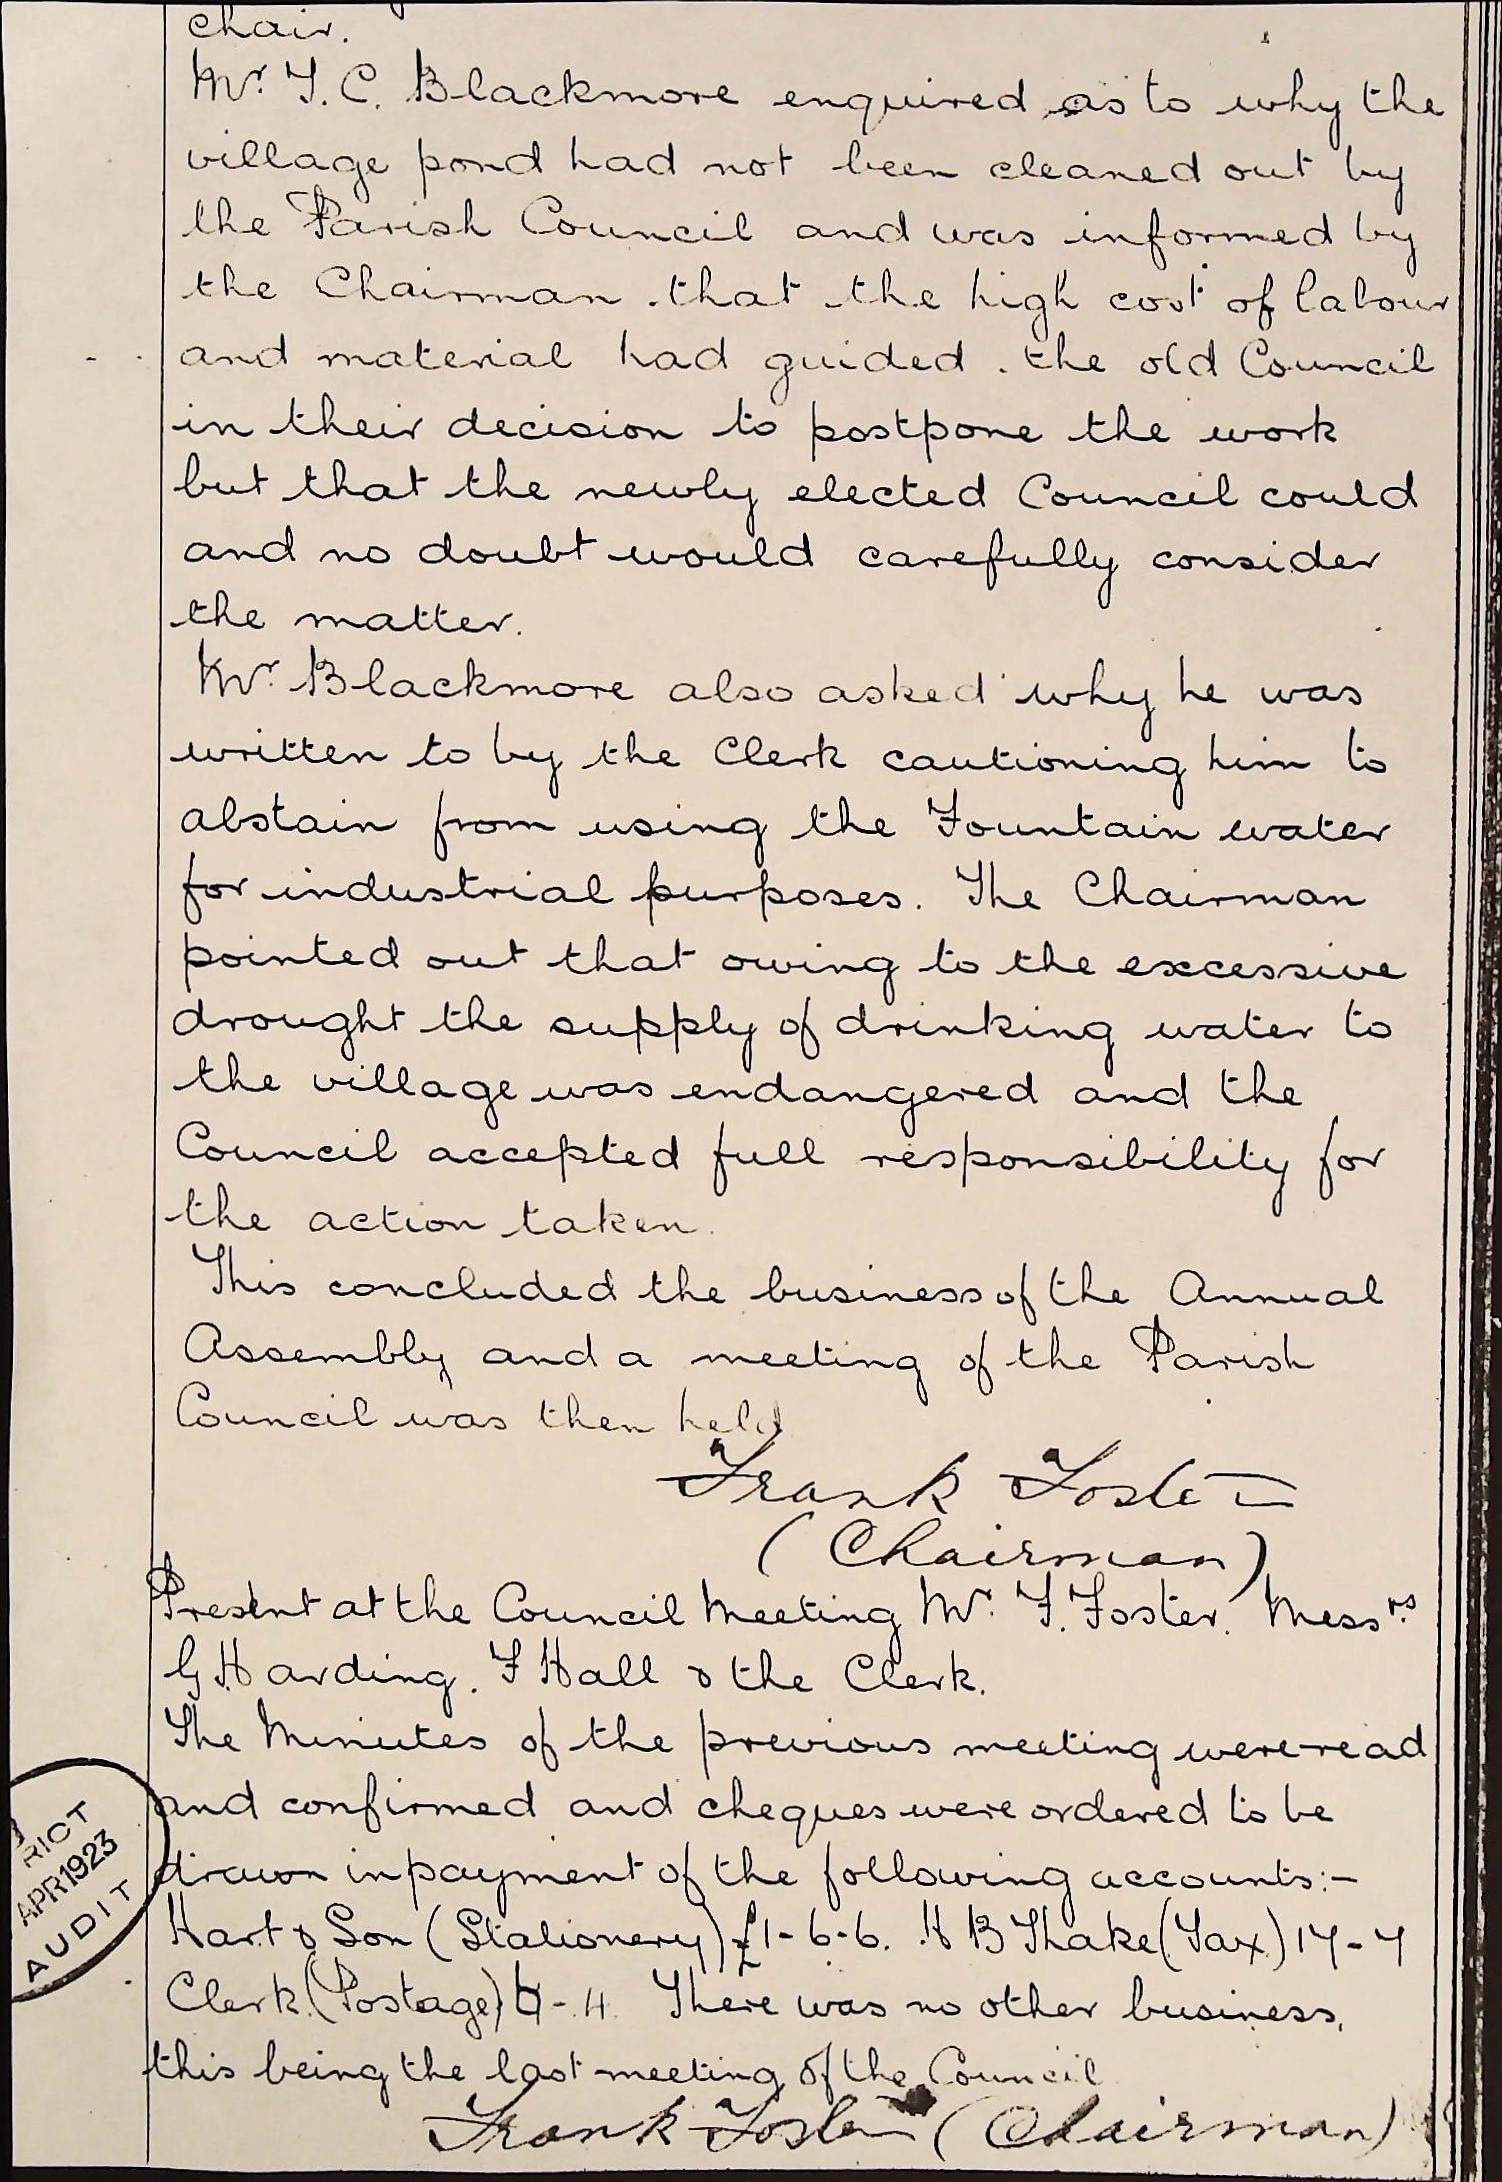 chair.
Mr. F. C. Blackmore enquired as to why the
village pond had not been cleaned out by
the Parish Council and was informed by
the Chairman that the high cost of labour
and material had guided the old Council
in their decision to postpone the work
but that the newly elected Council could
and no doubt would carefully consider
the matter.
Mr. Blackmore also asked why he was
written to by the Clerk cautioning him to
abstain from using the Fountain water
for industrial purposes. The Chairman
pointed out that owing to the excessive
drought the supply of drinking water to
the village was endangered and the
Council accepted full responsibility for
the action taken.
This concluded the business of the Annual
Assembly and a meeting of the Parish
Council was then held
Frank Foster
(Chairman)
Present at the Council Meeting Mr. F. Foster. Messrs.
G Harding. F Hall & the Clerk.
The Minutes of the previous meeting were read
and confirmed and cheques were ordered to be
drawn in payment of the following accounts:-
Hart & Son (Stationery) £1-6-6. H B Thake (Tax) 17-7
Clerk (Postage) -4. There was no other business,
this being the last meeting of the Council
Frank Foster (Chairman)
RICT
APR 1923
AUDIT